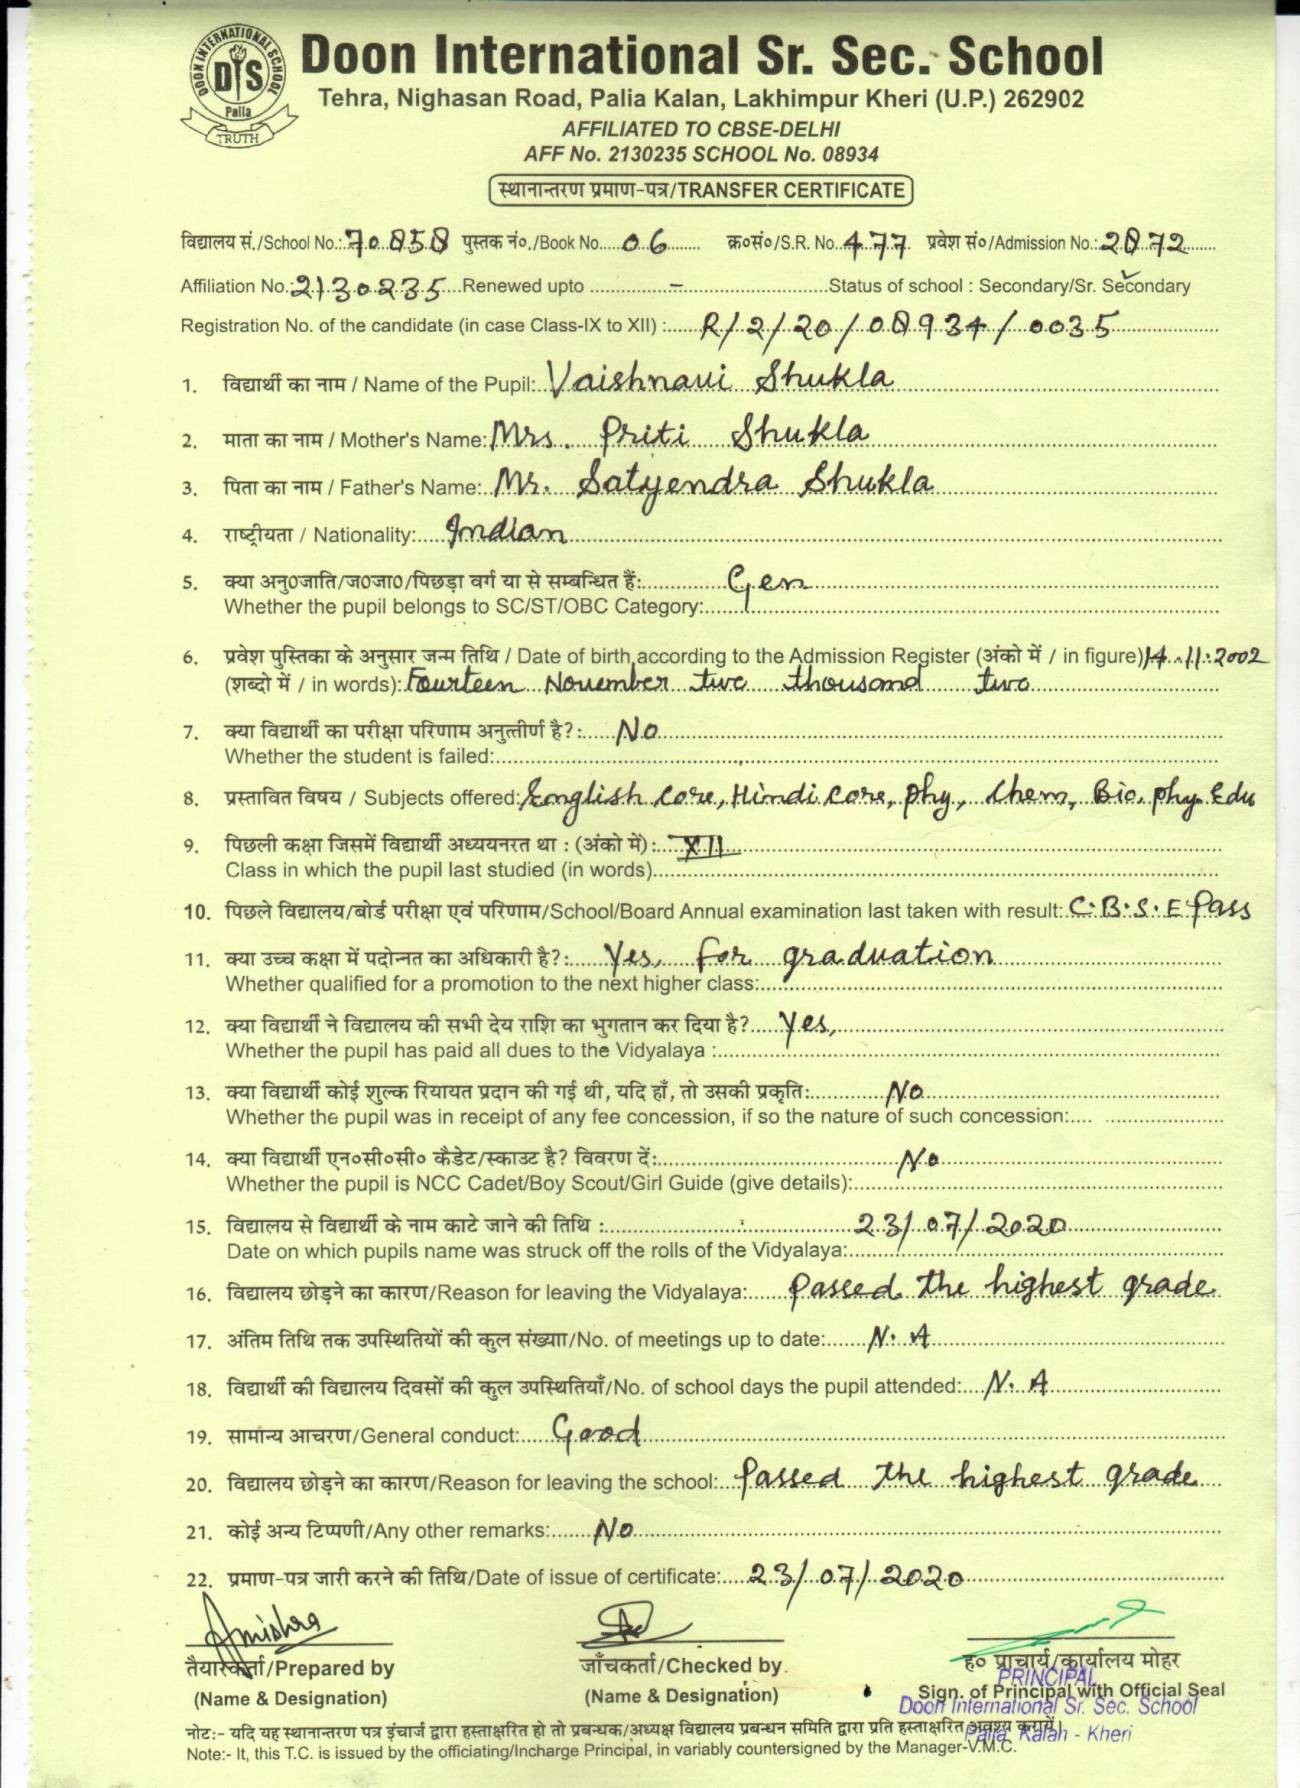 DOON INTERNATIONAL SCHOOL
DIS
Palia
TRUTH
Doon International Sr. Sec. School
Tehra, Nighasan Road, Palia Kalan, Lakhimpur Kheri (U.P.) 262902
AFFILIATED TO CBSE-DELHI
AFF No. 2130235 SCHOOL No. 08934
स्थानान्तरण प्रमाण-पत्र/TRANSFER CERTIFICATE
विद्यालय सं./School No.: 70858 पुस्तक नं०./Book No. 06 क्र०सं०/S.R. No. 477 प्रवेश सं०/Admission No.: 2872
Affiliation No.: 2130235 Renewed upto - Status of school : Secondary/Sr. Secondary
Registration No. of the candidate (in case Class-IX to XII) : R/2/20/08934/0035
1. विद्यार्थी का नाम / Name of the Pupil: Vaishnavi Shukla
2. माता का नाम / Mother's Name: Mrs. Priti Shukla
3. पिता का नाम / Father's Name: Mr. Satyendra Shukla
4. राष्ट्रीयता / Nationality: Indian
5. क्या अनु0जाति/ज0जा0/पिछड़ा वर्ग या से सम्बन्धित हैं: Gen
Whether the pupil belongs to SC/ST/OBC Category:
6. प्रवेश पुस्तिका के अनुसार जन्म तिथि / Date of birth according to the Admission Register (अंको में / in figure) 14.11.2002
(शब्दो में / in words): Fourteen November two thousand two
7. क्या विद्यार्थी का परीक्षा परिणाम अनुत्तीर्ण है?: No
Whether the student is failed:
8. प्रस्तावित विषय / Subjects offered: English core, Hindi core, phy, chem, Bio, phy. Edu
9. पिछली कक्षा जिसमें विद्यार्थी अध्ययनरत था : (अंको मे) : XII
Class in which the pupil last studied (in words)
10. पिछले विद्यालय/बोर्ड परीक्षा एवं परिणाम/School/Board Annual examination last taken with result: C.B.S.E Pass
11. क्या उच्च कक्षा में पदोन्नत का अधिकारी है?: Yes, for graduation
Whether qualified for a promotion to the next higher class:
12. क्या विद्यार्थी ने विद्यालय की सभी देय राशि का भुगतान कर दिया है? Yes,
Whether the pupil has paid all dues to the Vidyalaya :
13. क्या विद्यार्थी कोई शुल्क रियायत प्रदान की गई थी, यदि हाँ, तो उसकी प्रकृति: No
Whether the pupil was in receipt of any fee concession, if so the nature of such concession:
14. क्या विद्यार्थी एन०सी०सी० कैडेट/स्काउट है? विवरण दें: No
Whether the pupil is NCC Cadet/Boy Scout/Girl Guide (give details):
15. विद्यालय से विद्यार्थी के नाम काटे जाने की तिथि : 23/07/2020
Date on which pupils name was struck off the rolls of the Vidyalaya:
16. विद्यालय छोड़ने का कारण/Reason for leaving the Vidyalaya: Passed the highest grade
17. अंतिम तिथि तक उपस्थितियों की कुल संख्या/No. of meetings up to date: N.A
18. विद्यार्थी की विद्यालय दिवसों की कुल उपस्थितियाँ/No. of school days the pupil attended: N.A
19. सामान्य आचरण/General conduct: Good
20. विद्यालय छोड़ने का कारण/Reason for leaving the school: Passed the highest grade
21. कोई अन्य टिप्पणी/Any other remarks: No
22. प्रमाण-पत्र जारी करने की तिथि/Date of issue of certificate: 23/07/2020
Amishra
तैयारकर्ता/Prepared by जाँचकर्ता/Checked by ह० प्राचार्य/कार्यालय मोहर
PRINCIPAL
(Name & Designation) (Name & Designation) Sign. of Principal with Official Seal
Doon International Sr. Sec. School
नोट:- यदि यह स्थानान्तरण पत्र इंचार्ज द्वारा हस्ताक्षरित हो तो प्रबन्धक/अध्यक्ष विद्यालय प्रबन्धन समिति द्वारा प्रति हस्ताक्षरित अवश्य करायें।
Palia Kalan - Kheri
Note:- It, this T.C. is issued by the officiating/Incharge Principal, in variably countersigned by the Manager-V.M.C.